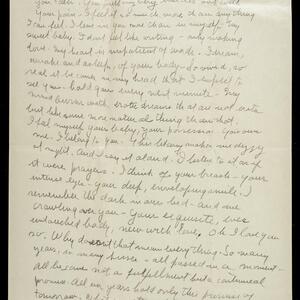 Your poem - I feel it so much more than anything
I can tell. I live in you more than in myself. My
sweet baby, I don't feel like writing - only making
love. My heart is impatient of words. I dream,
awake and asleep, of your body - so vivid, so
real it becomes in my heart that I expect to
see you - hold you every next minute - My
mind burns with erotic dreams that are not erotic
but like some more natural thing than that.
I feel myself your baby, your possession. You own
me. I belong to you. This litany makes me dizzy
at night, and I say it aloud. I listen to it as if
it were prayers. I think of your breasts - your
intense eyes - your deep, enveloping smile. I
remember the dark in our bed - and me
crawling over you - Your exquisite,
untouched body, new with love. Oh I love you
so. Why doesn't that mean everything - So many
years, so many kisses - all passed in a moment -
all become not a fulfillment but a continual
promise. All our years hold only the promise of
tomorrow.